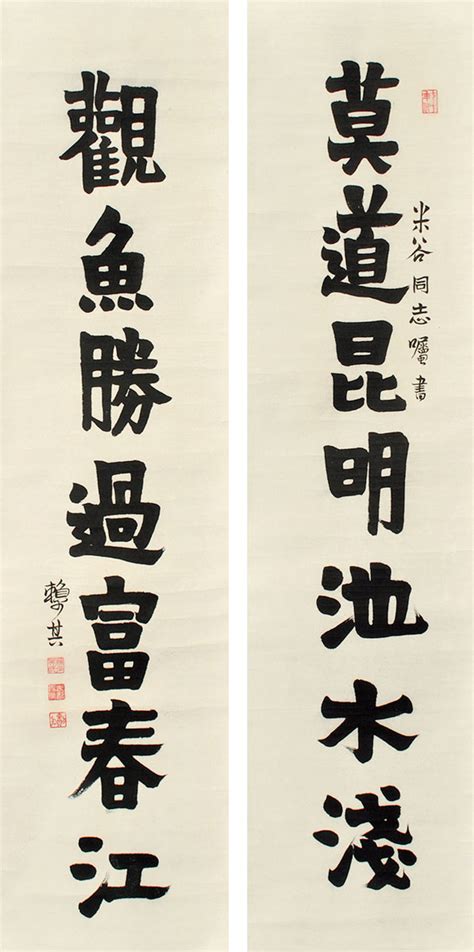 莫道昆明池水淺
米谷同志囑書
觀魚勝過富春江
賴少其